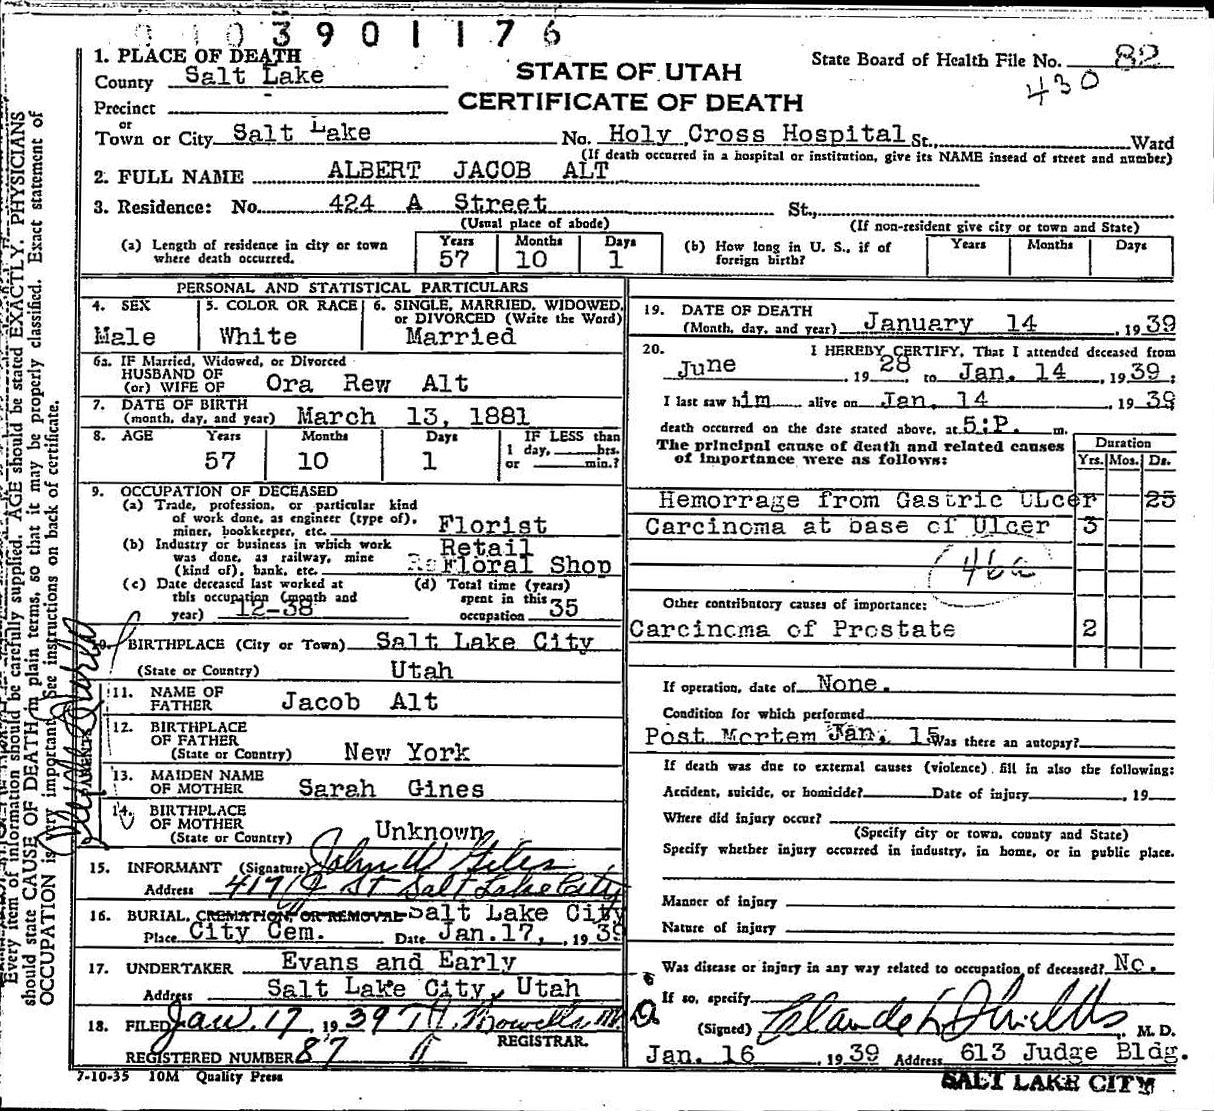 3901176
1. PLACE OF DEATH
County Salt Lake
STATE OF UTAH
CERTIFICATE OF DEATH
State Board of Health File No. 82
430
Precinct
or
Town or City Salt Lake No. Holy Cross Hospital St., Ward
(If death occurred in a hospital or institution, give its NAME insead of street and number)
2. FULL NAME ALBERT JACOB ALT
3. Residence: No. 424 A Street St.,
(Usual place of abode) (If non-resident give city or town and State)
(a) Length of residence in city or town where death occurred. Years 57 Months 10 Days 1
(b) How long in U. S., if of foreign birth? Years Months Days
PERSONAL AND STATISTICAL PARTICULARS
4. SEX Male
5. COLOR OR RACE White
6. SINGLE, MARRIED, WIDOWED,
or DIVORCED (Write the Word)
Married
6a. IF Married, Widowed, or Divorced
HUSBAND OF
(or) WIFE OF Ora Rew Alt
7. DATE OF BIRTH
(month, day, and year) March 13, 1881
8. AGE Years Months Days IF LESS than
57 10 1 1 day, hrs.
or min.?
9. OCCUPATION OF DECEASED
(a) Trade, profession, or particular kind
of work done, as engineer (type of),
miner, bookkeeper, etc. Florist
(b) Industry or business in which work
was done, as railway, mine
(kind of), bank, etc. Retail
Floral Shop
(c) Date deceased last worked at
this occupation (month and
year) 12-38
(d) Total time (years)
spent in this
occupation 35
BIRTHPLACE (City or Town) Salt Lake City
(State or Country) Utah
PARENTS
11. NAME OF
FATHER Jacob Alt
12. BIRTHPLACE
OF FATHER
(State or Country) New York
13. MAIDEN NAME
OF MOTHER Sarah Gines
14. BIRTHPLACE
OF MOTHER
(State or Country) Unknown
15. INFORMANT (Signature) John W Giles
Address 417 J St Salt Lake City
16. BURIAL, CREMATION, OR REMOVAL Salt Lake City
Place City Cem. Date Jan.17, 1939
17. UNDERTAKER Evans and Early
Address Salt Lake City, Utah
18. FILED Jan. 17 1939
REGISTRAR.
REGISTERED NUMBER 87
7-10-35 10M Quality Press
19. DATE OF DEATH
(Month, day, and year) January 14, 1939
20. I HEREBY CERTIFY, That I attended deceased from
June 28, 19 to Jan. 14, 1939;
I last saw him alive on Jan. 14 1939
death occurred on the date stated above, at 5:P. m.
The principal cause of death and related causes
of importance were as follows:
Duration
Yrs. Mos. Ds.
Hemorrage from Gastric ULcer 25
Carcinoma at base of Ulcer 3
46a
Other contributory causes of importance:
Carcinoma of Prostate 2
If operation, date of None.
Condition for which performed
Post Mortem Jan. 15 Was there an autopsy?
If death was due to external causes (violence) fill in also the following:
Accident, suicide, or homicide? Date of injury , 19
Where did injury occur?
(Specify city or town, county and State)
Specify whether injury occurred in industry, in home, or in public place.
Manner of injury
Nature of injury
Was disease or injury in any way related to occupation of deceased? No.
If so, specify
(Signed) Claude L Shields, M. D.
Jan. 16, 1939 Address 613 Judge Bldg.
SALT LAKE CITY
Every item of information should be carefully supplied. AGE should be stated EXACTLY. PHYSICIANS
should state CAUSE OF DEATH in plain terms, so that it may be properly classified. Exact statement of
OCCUPATION is very important. See instructions on back of certificate.